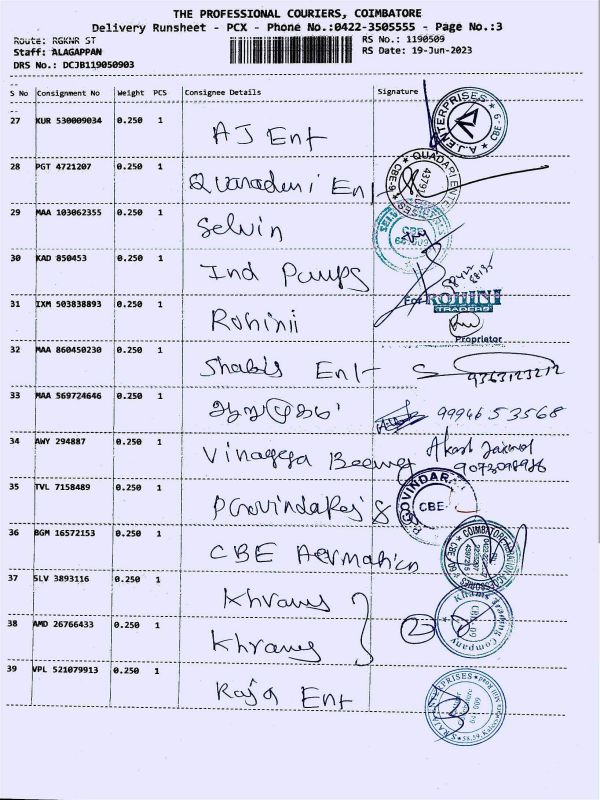 THE PROFESSIONAL COURIERS, COIMBATORE
Delivery Runsheet - PCX - Phone No.:0422-3505555 - Page No.:3
Route: RGKNR ST
RS No.: 1190509
Staff: ALAGAPPAN
RS Date: 19-Jun-2023
DRS No.: DCJB119050903
S No Consignment No Weight PCS Consignee Details Signature
27 KUR 530009034 0.250 1 AJ Ent
A.J.ENTERPRISES
28 PGT 4721207 0.250 1 Ent
QUADARI ENTE
29 MAA 103062355 0.250 1 Selvin
CBE
641 009
30 KAD 850453 0.250 1 Ind Pumps
31 IXM 503838893 0.250 1 Rohinii
For ROHINI
TRADERS
Proprietor
32 MAA 860450230 0.250 1 Shabis Ent
9363123212
33 MAA 569724646 0.250 1
99946 53568
34 AWY 294887 0.250 1 Vinayega
Akash
35 TVL 7158489 0.250 1 PGovindaraj &
GOVINDARAJ
CBE
36 BGM 16572153 0.250 1 CBE
COIMBATORE
37 SLV 3893116 0.250 1 Khrams
38 AMD 26766433 0.250 1 Khrams
2
Khrams Trading Company
39 VPL 521079913 0.250 1 Raja Ent
641 009